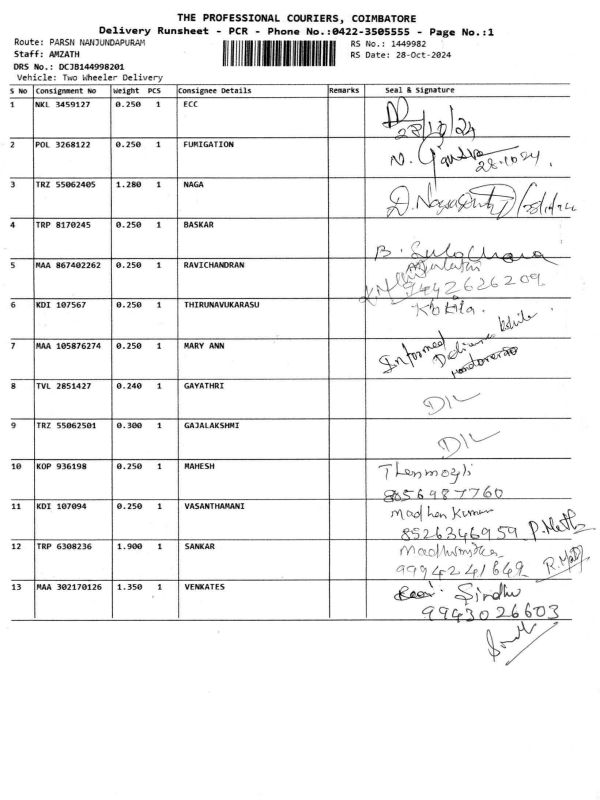 THE PROFESSIONAL COURIERS, COIMBATORE
Delivery Runsheet - PCR - Phone No.:0422-3505555 - Page No.:1
Route: PARSN NANJUNDAPURAM RS No.: 1449982
Staff: AMZATH RS Date: 28-Oct-2024
DRS No.: DCJB144998201
Vehicle: Two Wheeler Delivery
S No Consignment No Weight PCS Consignee Details Remarks Seal & Signature
1 NKL 3459127 0.250 1 ECC
28/10/24
2 POL 3268122 0.250 1 FUMIGATION
28.10.24.
3 TRZ 55062405 1.280 1 NAGA
4 TRP 8170245 0.250 1 BASKAR
B. Sulochana
5 MAA 867402262 0.250 1 RAVICHANDRAN
9442626209
6 KDI 107567 0.250 1 THIRUNAVUKARASU
Kokila.
7 MAA 105876274 0.250 1 MARY ANN
Informed
8 TVL 2851427 0.240 1 GAYATHRI
D/L
9 TRZ 55062501 0.300 1 GAJALAKSHMI
D/L
10 KOP 936198 0.250 1 MAHESH
Thenmozhi
8056987760
11 KDI 107094 0.250 1 VASANTHAMANI
Madhan Kumar
8526346959
12 TRP 6308236 1.900 1 SANKAR
9994241649
13 MAA 302170126 1.350 1 VENKATES
Sindhu
9943026603